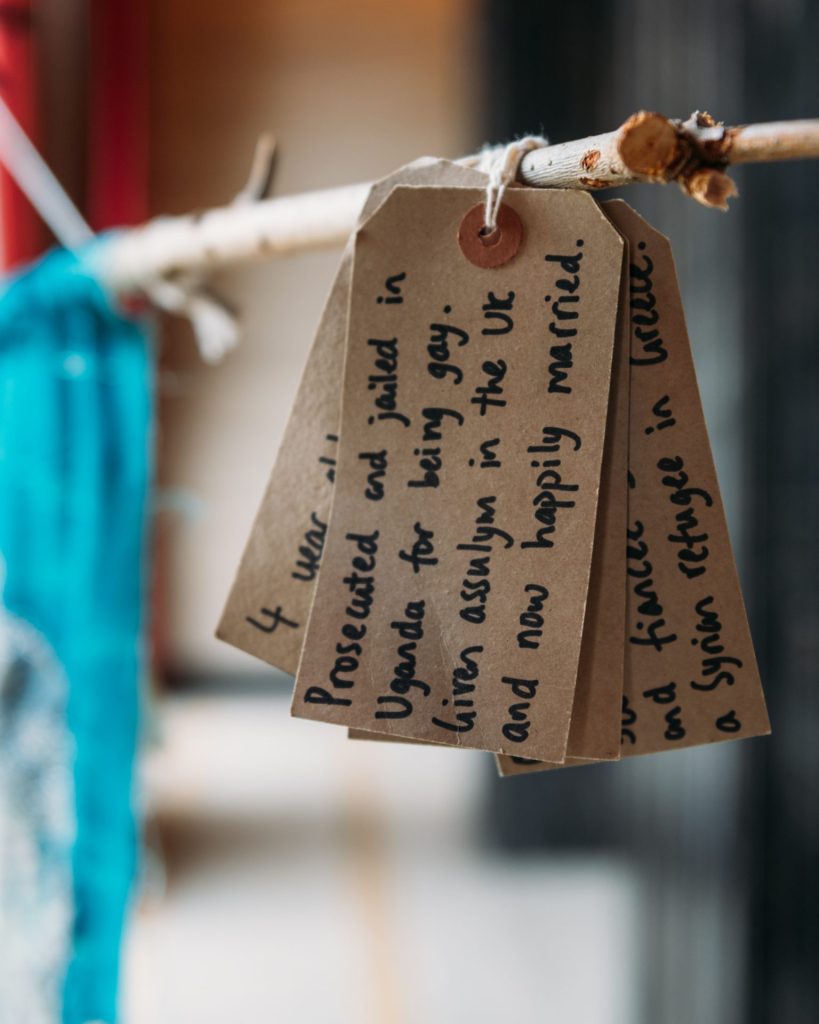 Prosecuted and jailed in
Uganda for being gay.
Given assulym in the UK
and now happily married.
4 year
and fiancee
a Syrian refugee in Greece.